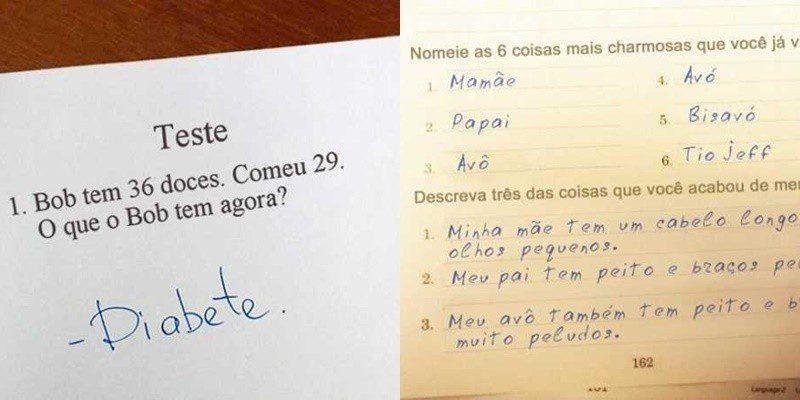 Teste
1. Bob tem 36 doces. Comeu 29.
O que o Bob tem agora?
- Diabete.
Nomeie as 6 coisas mais charmosas que você já v
1. Mamãe
2. Papai
3. Avô
4. Avó
5. Bisavó
6. Tio Jeff
Descreva três das coisas que você acabou de me
1. Minha mãe tem um cabelo longo
olhos pequenos.
2. Meu pai tem peito e braços pe
3. Meu avô também tem peito e b
muito peludos.
162
Language 2